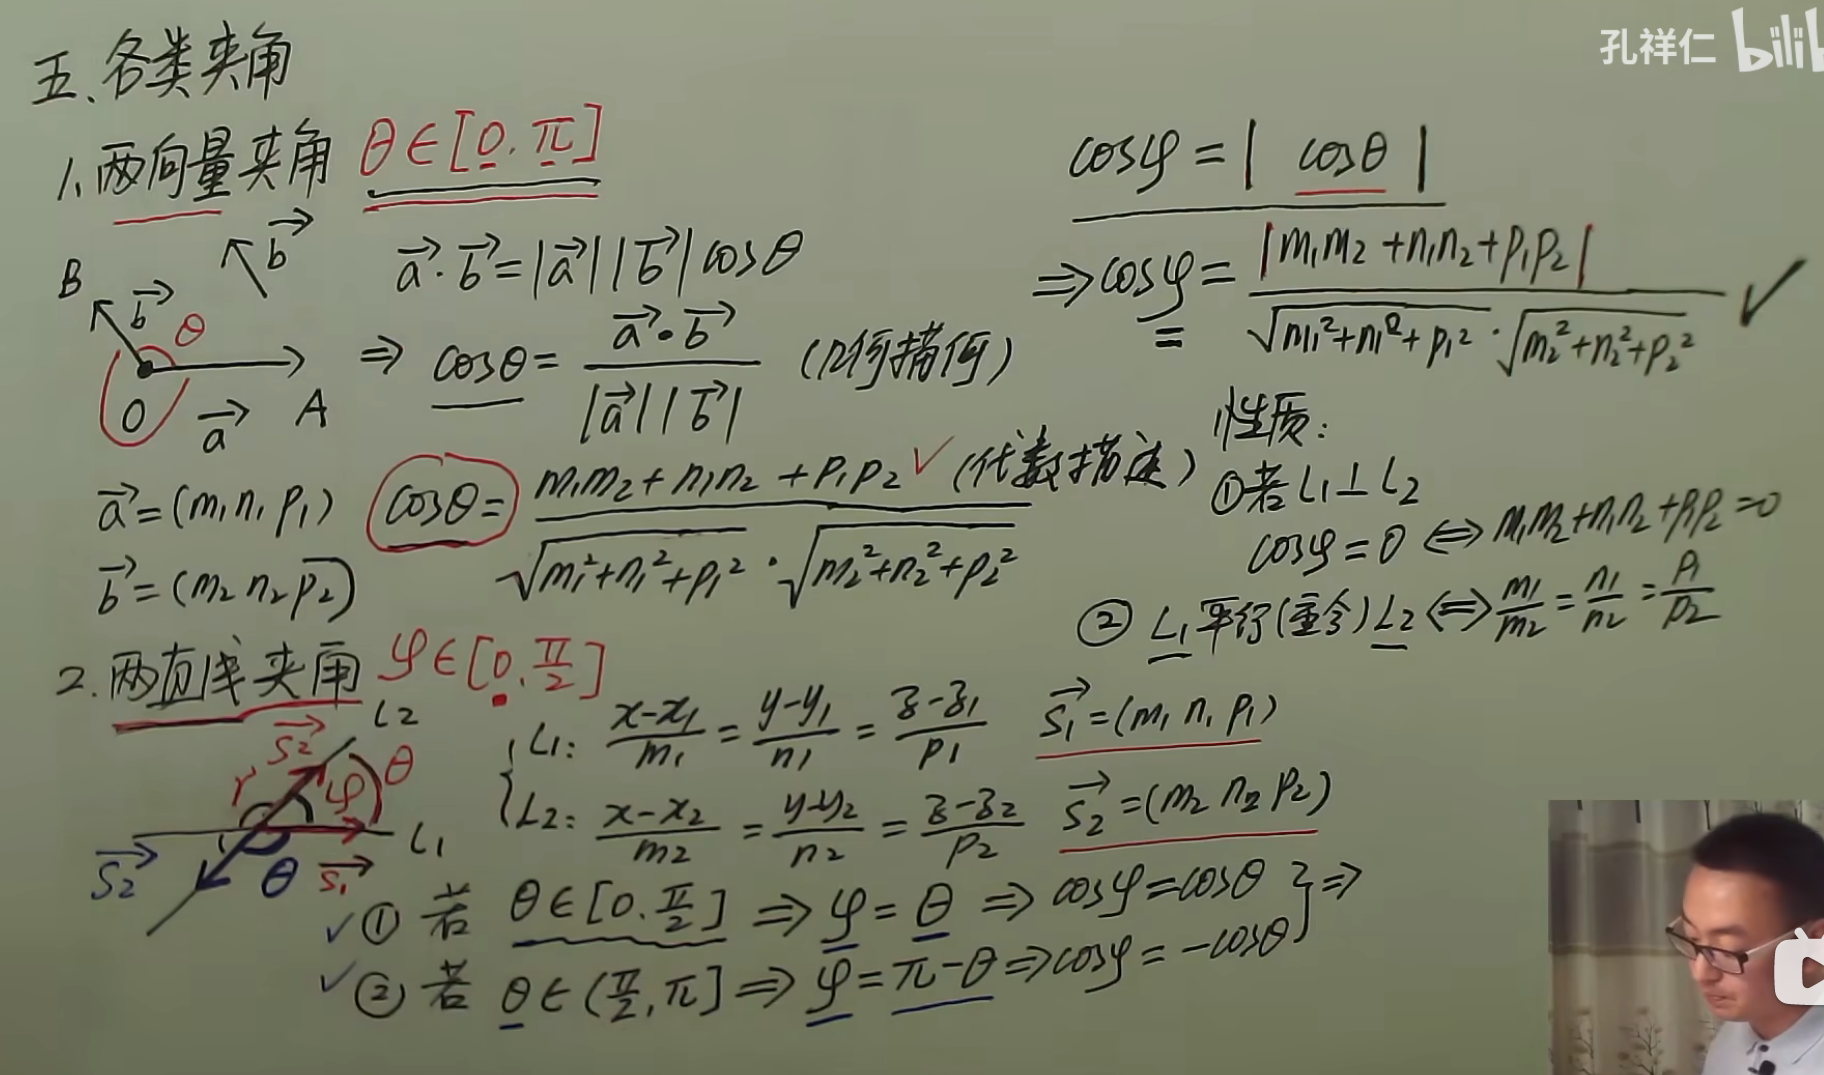 孔祥仁 bilib
五、各类夹角
1、两向量夹角 θ∈[0.π]
b→
a→·b→=|a→||b→|cosθ
B b→ θ
O a→ A
⇒ cosθ= a→·b→ / |a→||b→| (几何描何)
a→=(m₁ n₁ p₁)
b→=(m₂ n₂ p₂)
cosθ= m₁m₂+n₁n₂+p₁p₂ / √m₁²+n₁²+p₁² · √m₂²+n₂²+p₂² ✓ (代数描述)
2.两直线夹角 φ∈[0.π/2]
S₂→ L₂
r φ θ
L₁
S₂→ θ S₁→
L₁: x-x₁/m₁ = y-y₁/n₁ = z-z₁/p₁ S₁→=(m₁ n₁ p₁)
L₂: x-x₂/m₂ = y-y₂/n₂ = z-z₂/p₂ S₂→=(m₂ n₂ p₂)
✓① 若 θ∈[0.π/2] ⇒ φ=θ ⇒ cosφ=cosθ
✓② 若 θ∈(π/2,π] ⇒ φ=π-θ ⇒ cosφ=-cosθ } ⇒
cosφ=| cosθ |
⇒cosφ= |m₁m₂+n₁n₂+p₁p₂| / √m₁²+n₁²+p₁² · √m₂²+n₂²+p₂² ✓
性质:
①若L₁⊥L₂
cosφ=0 ⇔ m₁m₂+n₁n₂+p₁p₂=0
② L₁平行(重合)L₂ ⇔ m₁/m₂ = n₁/n₂ = p₁/p₂